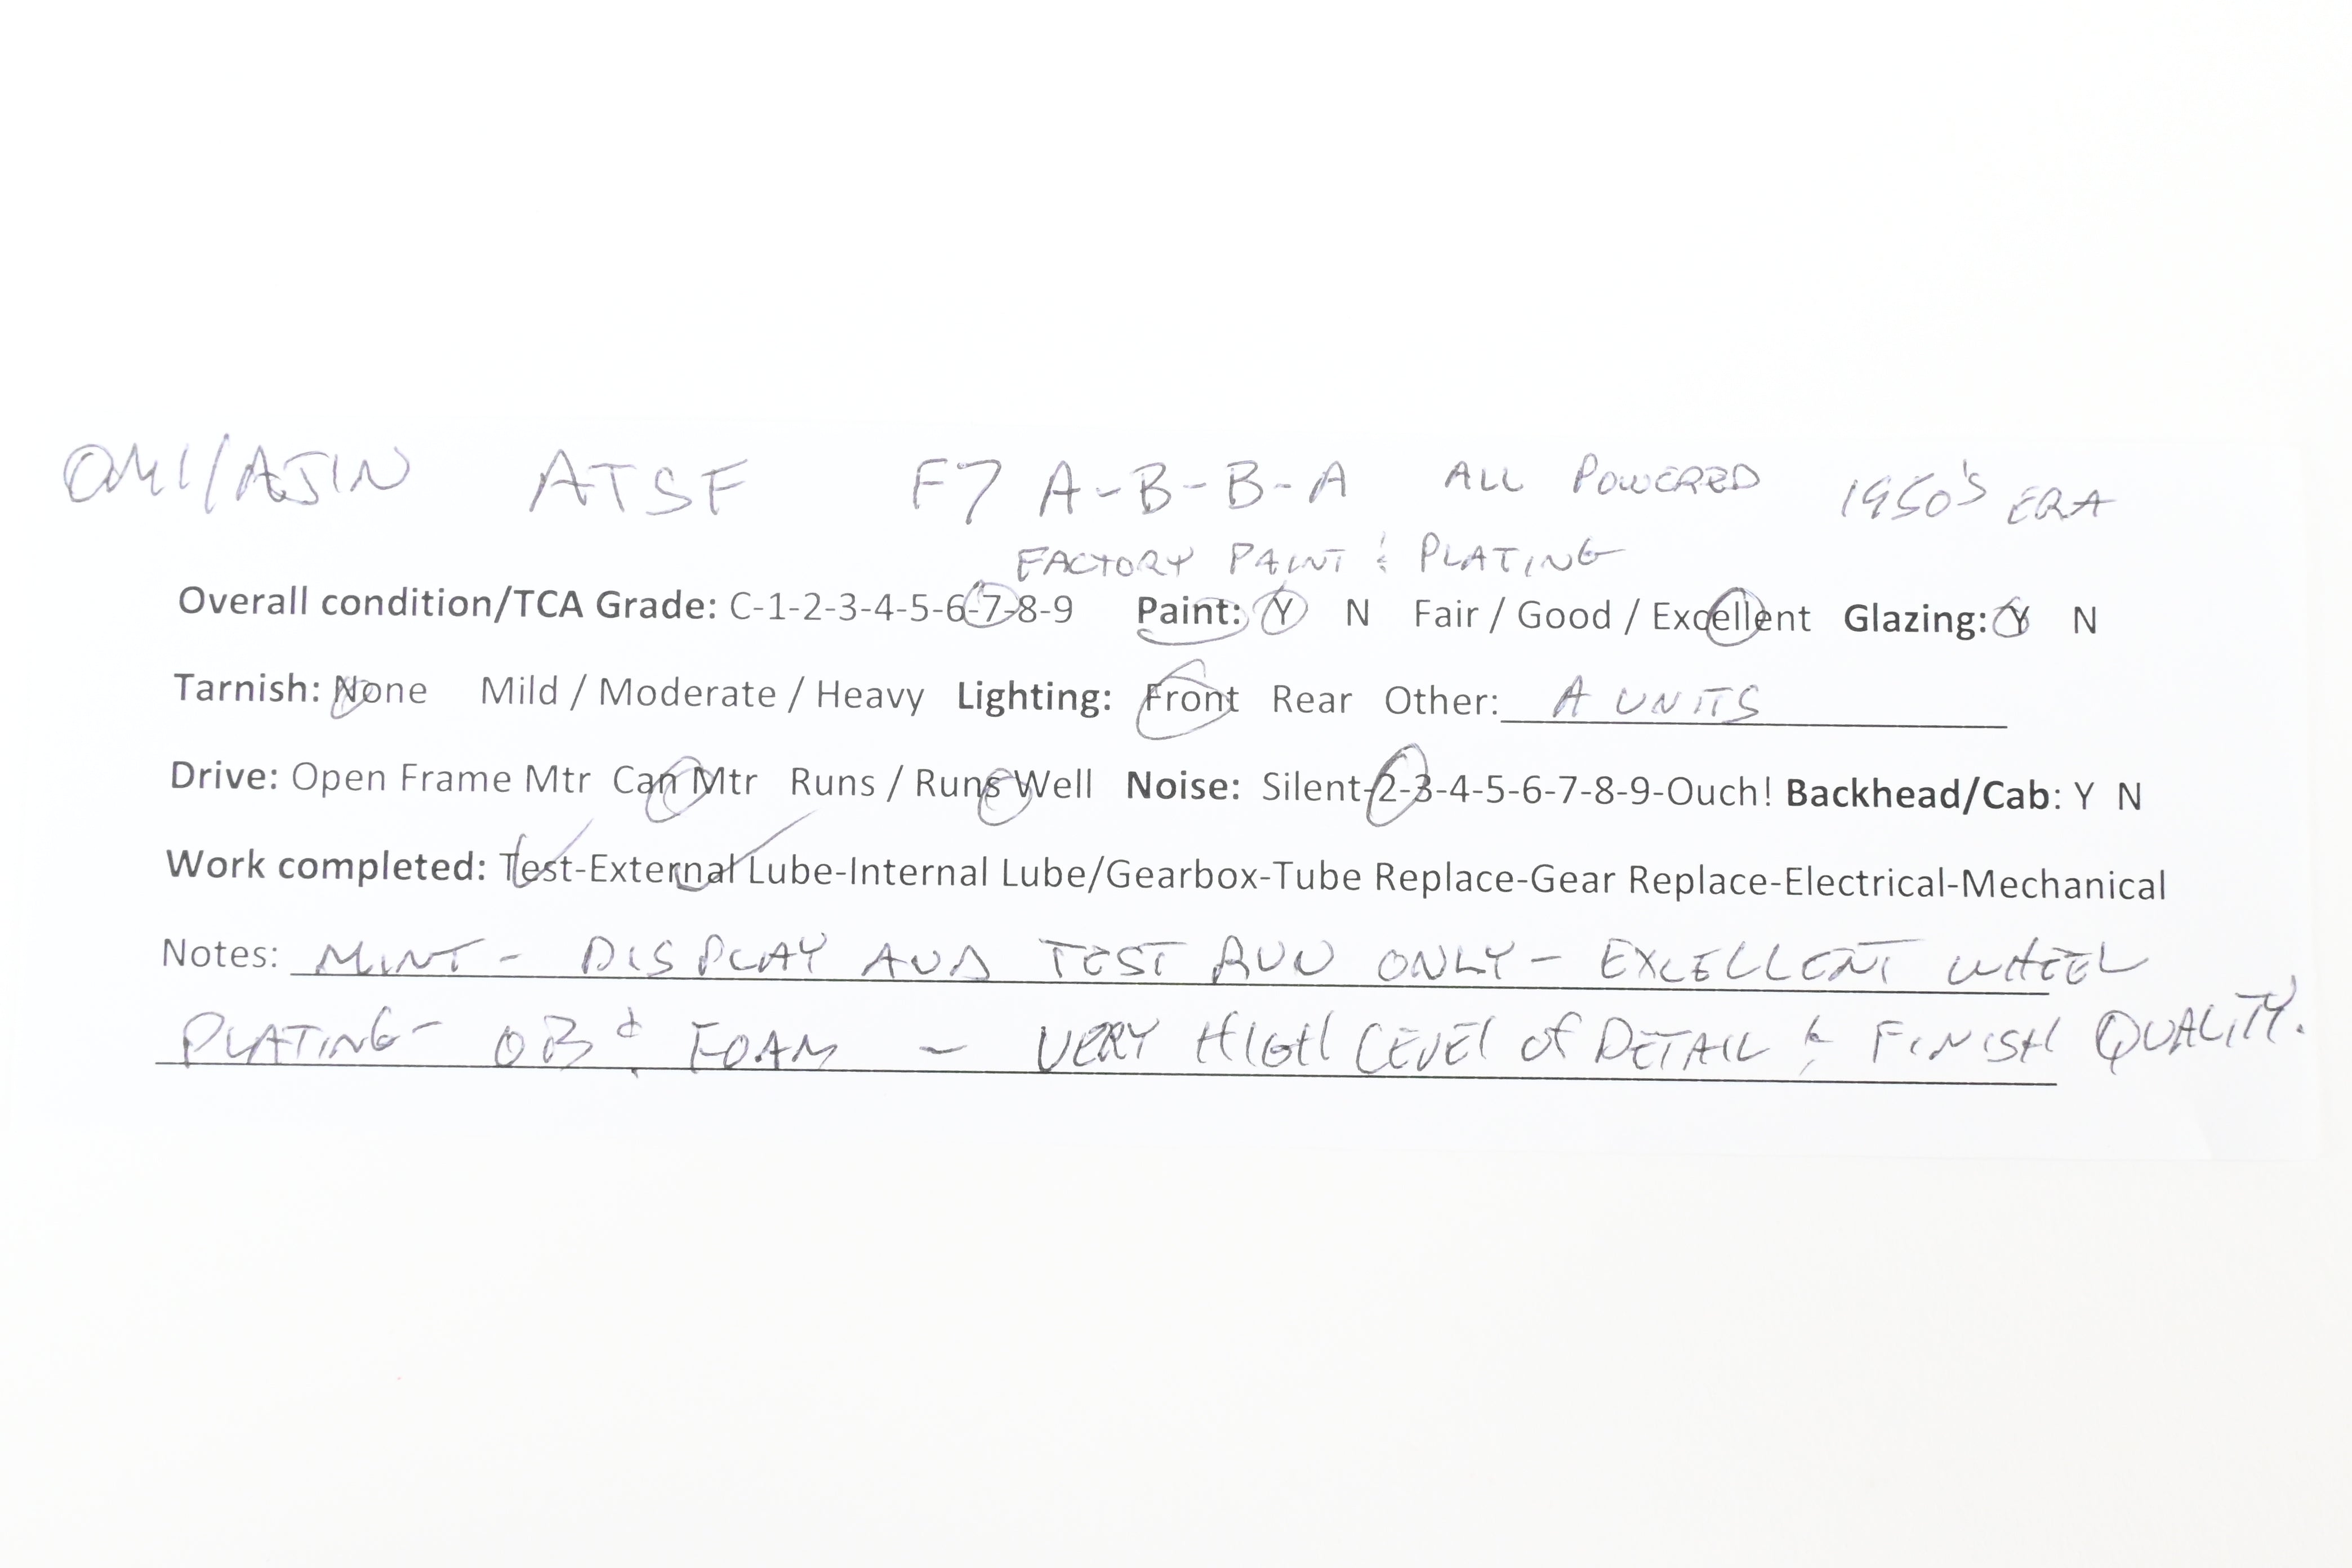 OMI/AJIN ATSF F7 A-B-B-A ALL POWERED 1950'S ERA
FACTORY PAINT & PLATING
Overall condition/TCA Grade: C-1-2-3-4-5-6-7-8-9 Paint: Y N Fair / Good / Excellent Glazing: Y N
Tarnish: None Mild / Moderate / Heavy Lighting: Front Rear Other: A UNITS
Drive: Open Frame Mtr Can Mtr Runs / Runs Well Noise: Silent-2-3-4-5-6-7-8-9-Ouch! Backhead/Cab: Y N
Work completed: Test-External Lube-Internal Lube/Gearbox-Tube Replace-Gear Replace-Electrical-Mechanical
Notes: MINT - DISPLAY AND TEST RUN ONLY - EXCELLENT WHEEL
PLATING - OB & FOAM - VERY HIGH LEVEL of DETAIL & FINISH QUALITY.